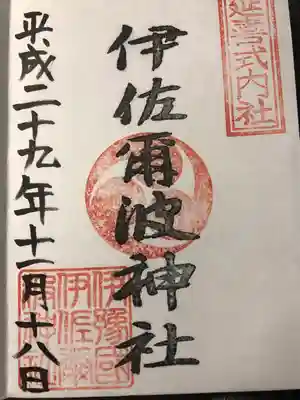 延喜式内社
伊佐爾波神社
平成二十九年十一月十八日